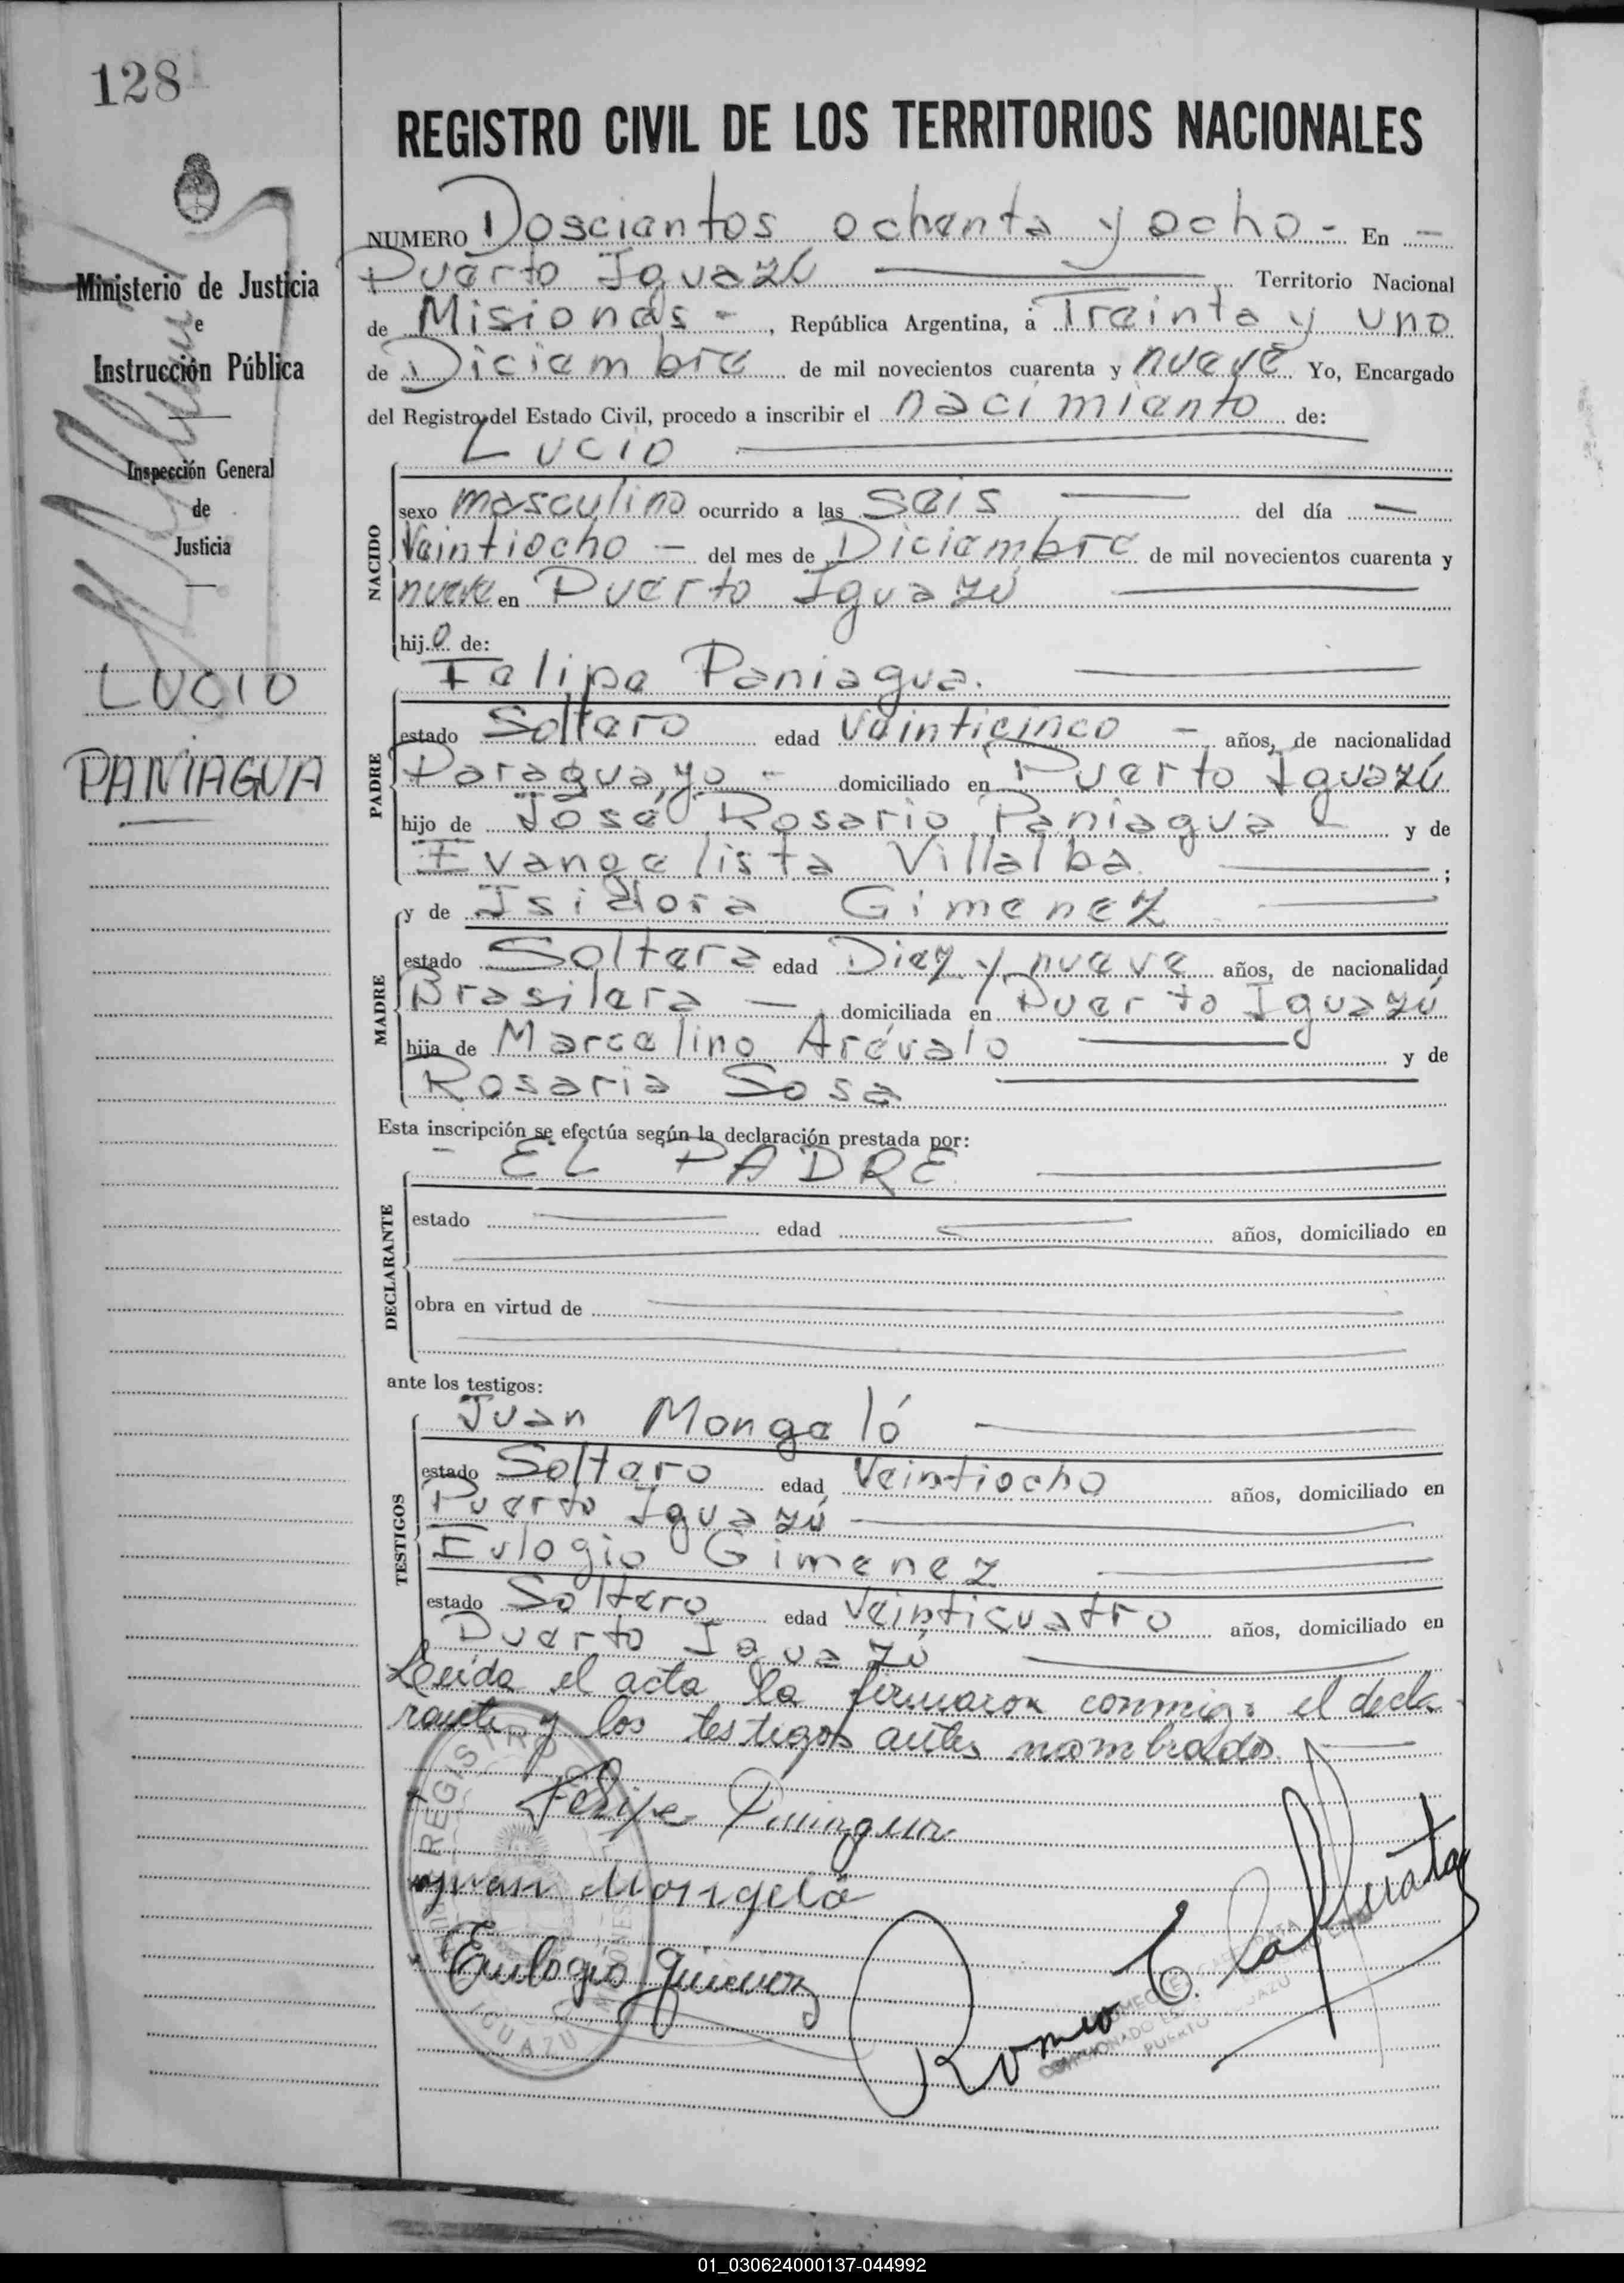 128
REGISTRO CIVIL DE LOS TERRITORIOS NACIONALES
Ministerio de Justicia
e
Instrucción Pública
Inspección General
de
Justicia
LUCIO
PANIAGUA
NUMERO Dosciantos ochenta y ocho - En -
Puerto Iguazú Territorio Nacional
de Misiones - , República Argentina, a Treinta y uno
de Diciembre de mil novecientos cuarenta y nueve Yo, Encargado
del Registro del Estado Civil, procedo a inscribir el nacimiento de:
Lucio
NACIDO
sexo masculino ocurrido a las seis del día —
Veintiocho - del mes de Diciembre de mil novecientos cuarenta y
nueve en Puerto Iguazú
hij.o de:
Felipe Paniagua.
PADRE
estado Soltero edad Veinticinco - años, de nacionalidad
Paraguayo - domiciliado en Puerto Iguazú
hijo de José Rosario Paniagua - y de
Evangelista Villalba ;
MADRE
y de Isidora Gimenez
estado Soltera edad Diez y nueve años, de nacionalidad
Brasilera - domiciliada en Puerto Iguazú
hija de Marcelino Arévalo y de
Rosaria Sosa
Esta inscripción se efectúa según la declaración prestada por:
- EL PADRE
DECLARANTE
estado edad años, domiciliado en
obra en virtud de
ante los testigos:
TESTIGOS
Juan Mongeló
estado Soltero edad Veintiocho años, domiciliado en
Puerto Iguazú
Eulogio Gimenez
estado Soltero edad Veinticuatro años, domiciliado en
Puerto Iguazú
Leída el acta la firmaron conmigo el decla-
rante y los testigos antes nombrados.
Felipe Paniagua
Juan Mongeló
Eulogio Gimenez
Romeo E.
REGISTRO
MISIONES
IGUAZU
PUERTO IGUAZU
01_030624000137-044992